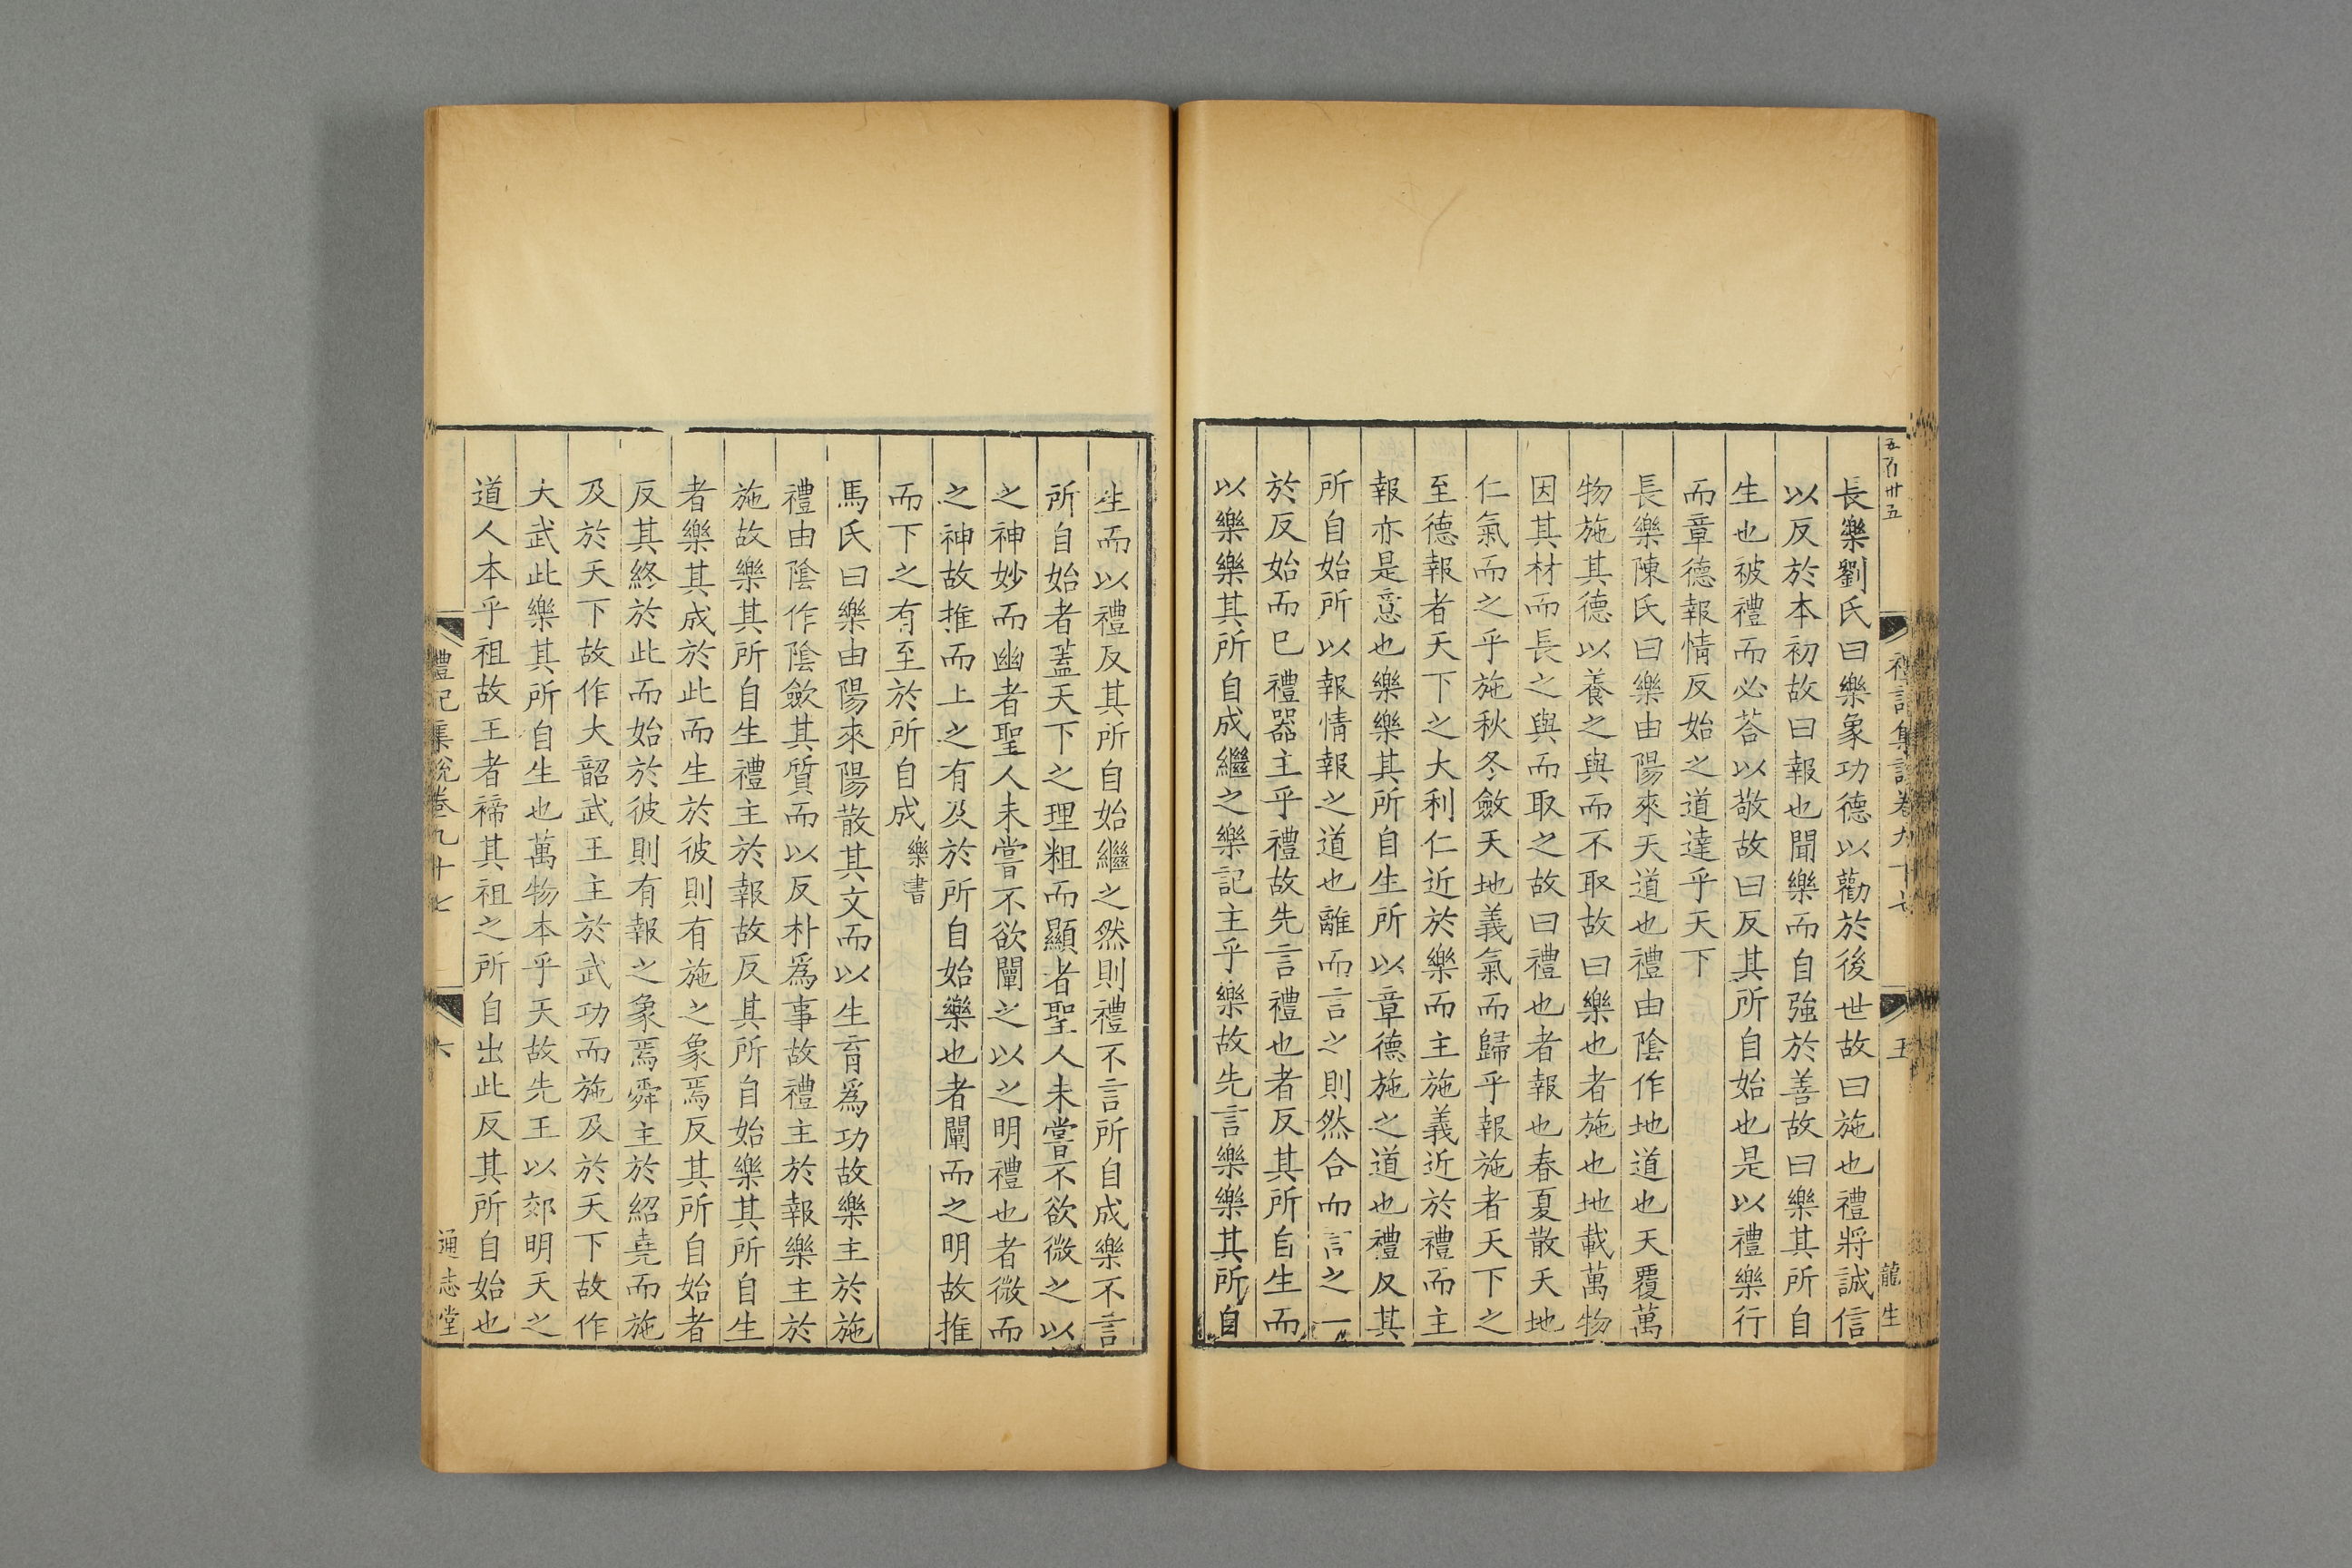 五百卅五
禮記集說卷九十七
五
龍生
長樂劉氏曰樂象功德以勸於後世故曰施也禮將誠信
以反於本初故曰報也聞樂而自強於善故曰樂其所自
生也被禮而必荅以敬故曰反其所自始也是以禮樂行
而章德報情反始之道達乎天下
長樂陳氏曰樂由陽來天道也禮由陰作地道也天覆萬
物施其德以養之與而不取故曰樂也者施也地載萬物
因其材而長之與而取之故曰禮也者報也春夏散天地
仁氣而之乎施秋冬斂天地義氣而歸乎報施者天下之
至德報者天下之大利仁近於樂而主施義近於禮而主
報亦是意也樂樂其所自生所以章德施之道也禮反其
所自始所以報情報之道也離而言之則然合而言之一
於反始而已禮器主乎禮故先言禮也者反其所自生而
以樂樂其所自成繼之樂記主乎樂故先言樂樂其所自
生而以禮反其所自始繼之然則禮不言所自成樂不言
所自始者蓋天下之理粗而顯者聖人未嘗不欲微之以
之神妙而幽者聖人未嘗不欲闡之以之明禮也者微而
之神故推而上之有及於所自始樂也者闡而之明故推
而下之有至於所自成樂書
馬氏曰樂由陽來陽散其文而以生育爲功故樂主於施
禮由陰作陰斂其質而以反朴爲事故禮主於報樂主於
施故樂其所自生禮主於報故反其所自始樂其所自生
者樂其成於此而生於彼則有施之象焉反其所自始者
反其終於此而始於彼則有報之象焉舜主於紹堯而施
及於天下故作大韶武王主於武功而施及於天下故作
大武此樂其所自生也萬物本乎天故先王以郊明天之
道人本乎祖故王者禘其祖之所自出此反其所自始也
禮記集說卷九十七
六
通志堂